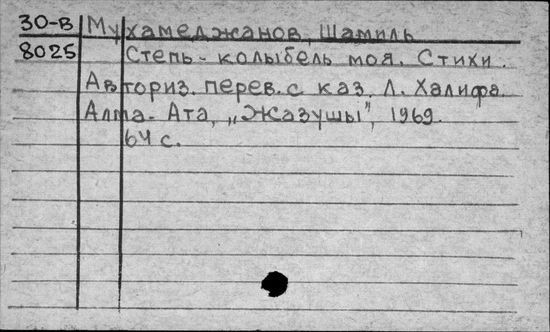 30-В Мухамеджанов, Шамиль
8025 Степь - колыбель моя. Стихи.
Авториз. перев. с каз. Л. Халифа.
Алма-Ата, „Жазушы", 1969.
64 с.